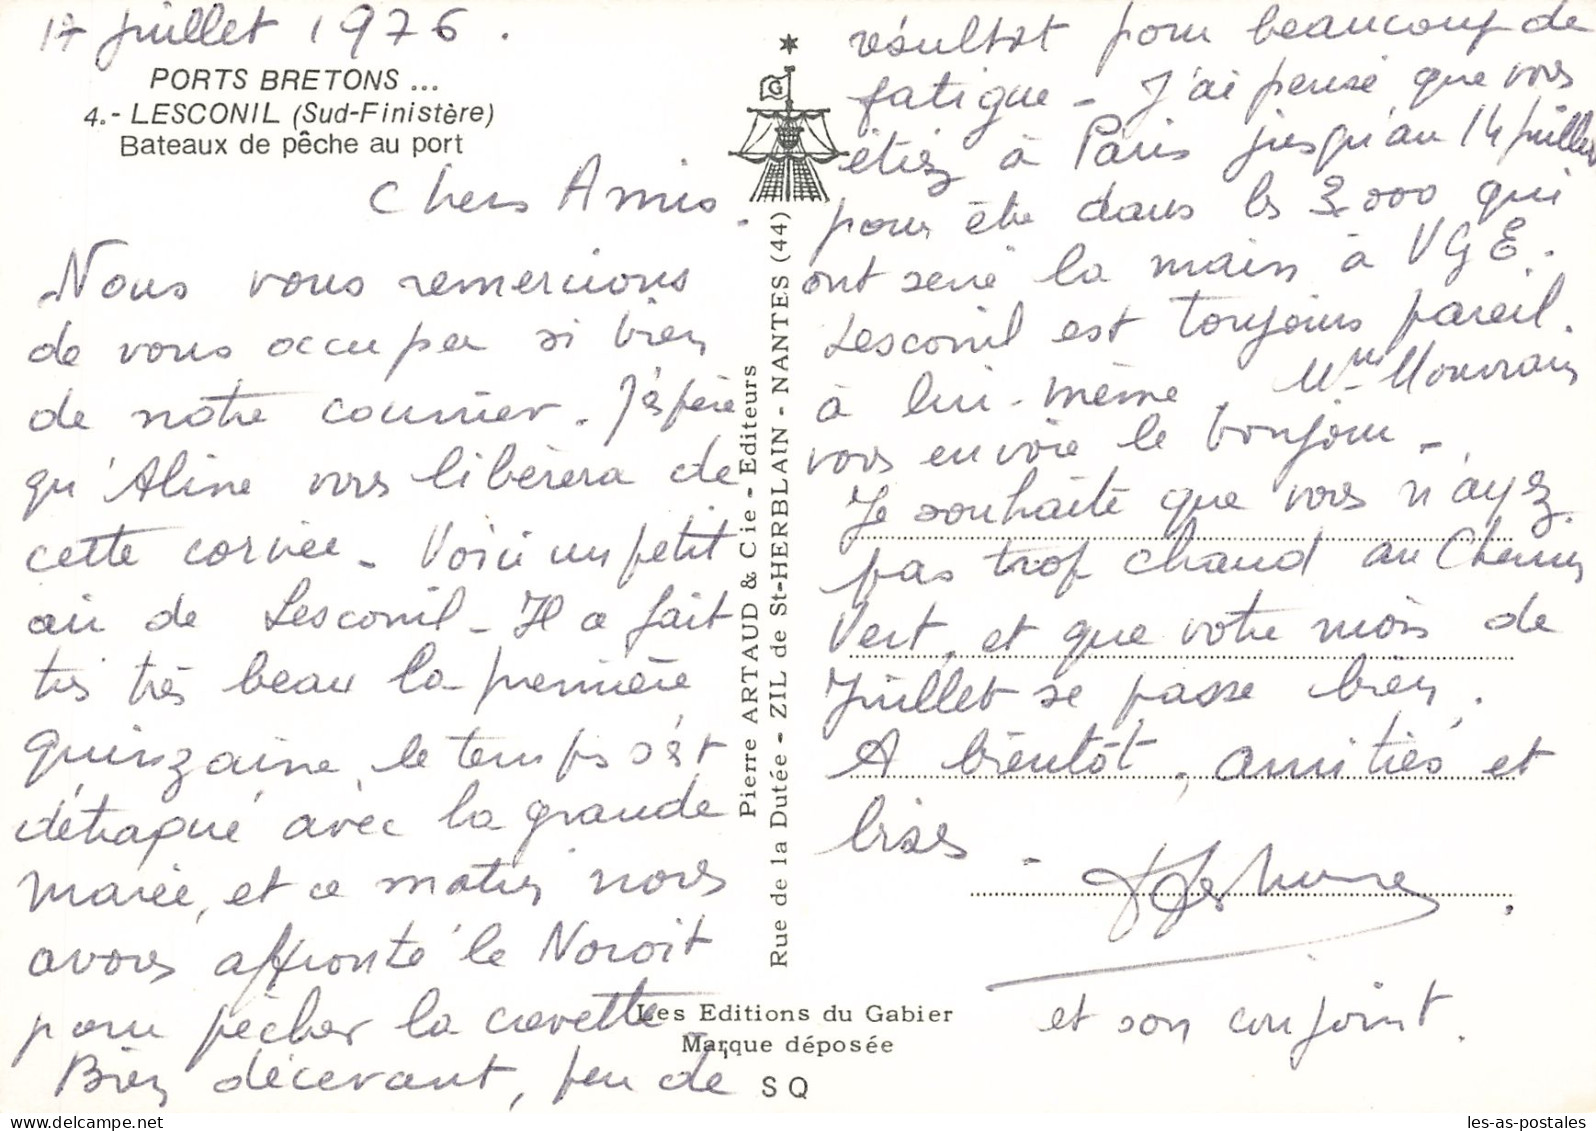 17 juillet 1976.
PORTS BRETONS ...
4.- LESCONIL (Sud-Finistère)
Bateaux de pêche au port
Chers Amis.
Nous vous remercions
de vous occuper si bien
de notre courrier. J'espère
qu'Aline vous libèrera de
cette corvée. Voici un petit
air de Lesconil - Il a fait
très très beau la première
quinzaine, le temps s'est
détraqué avec la grande
marée, et ce matin nous
avons affronté le Noroit
pour pêcher la crevette
Bien décevant, peu de
G
Pierre ARTAUD & Cie - Editeurs
Rue de la Dutée - ZIL de St-HERBLAIN - NANTES (44)
Les Editions du Gabier
Marque déposée
SQ
résultat pour beaucoup de
fatigue - J'ai pensé que vous
étiez à Paris jusqu'au 14 juillet
pour être dans les 3.000 qui
ont serré la main à VGE.
Lesconil est toujours pareil
à lui-même. Mme
vous envoie le bonjour -
Je souhaite que vous n'ayez
pas trop chaud au Chemin
Vert, et que votre mois de
Juillet se passe bien.
A bientôt, amitiés et
bises -
et son conjoint.
les-as-postales